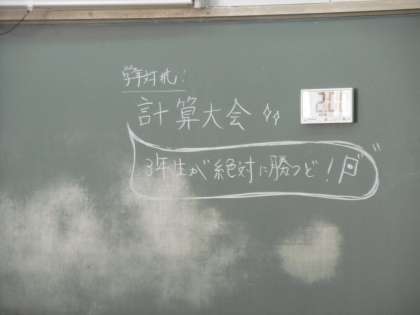 学年対抗!
計算大会
3年生が絶対に勝つど!